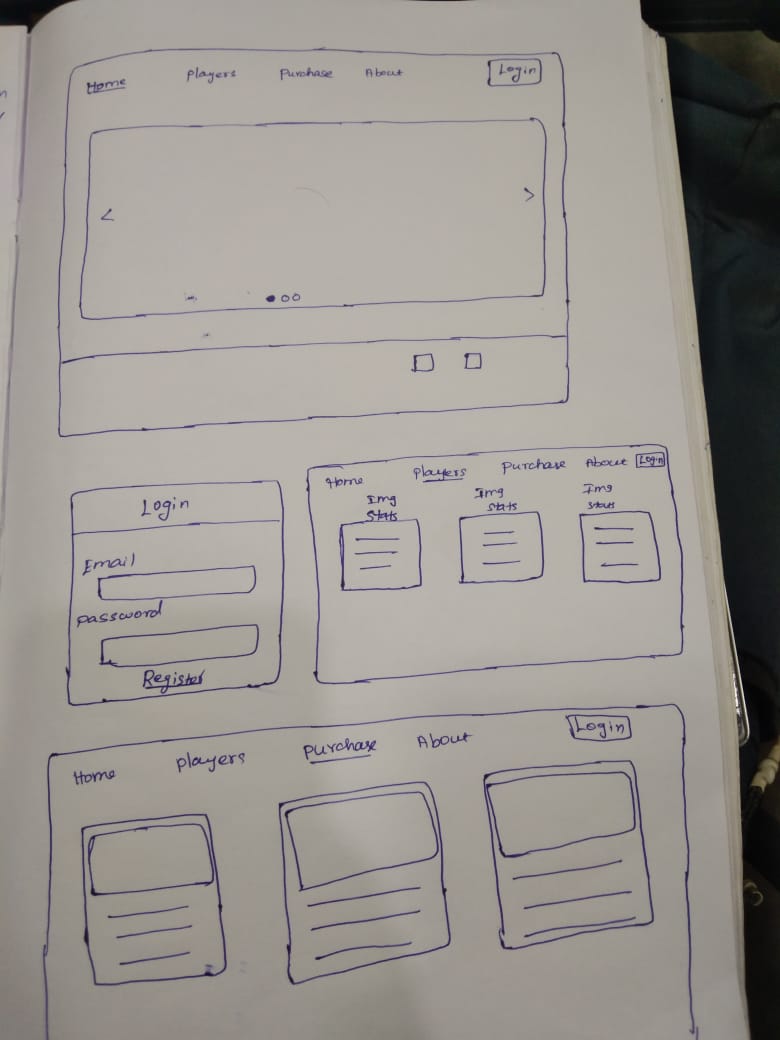 Home Players Purchase About Login
< >
Login
Email
Password
Register
Home Players Purchase About Login
Img Img Img
Stats Stats Stats
Home Players Purchase About Login